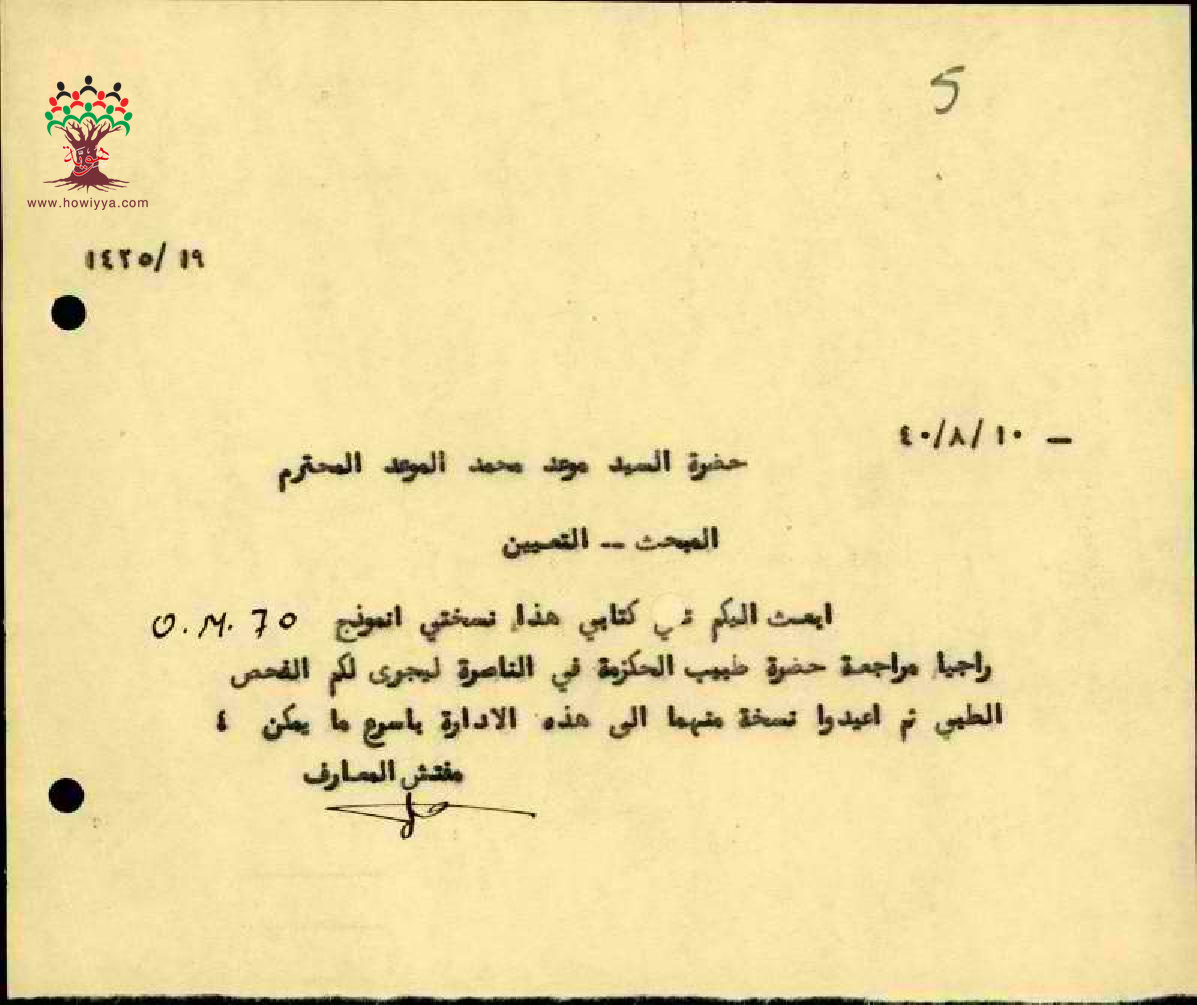 5
هوية
www.howiyya.com
١٤٢٥/ ١٩
٤٠/٨/ ١٠ —
حضرة السيد موعد محمد الموعد المحترم
المبحث -- التعيين
ابعث اليكم في كتابي هذا نسختي انموذج O.M. 70
راجيا مراجعة حضرة طبيب الحكزمة في الناصرة ليجرى لكم الفحص
الطبي ثم اعيدوا نسخة منهما الى هذه الادارة باسرع ما يمكن ٤
مفتش المعارف